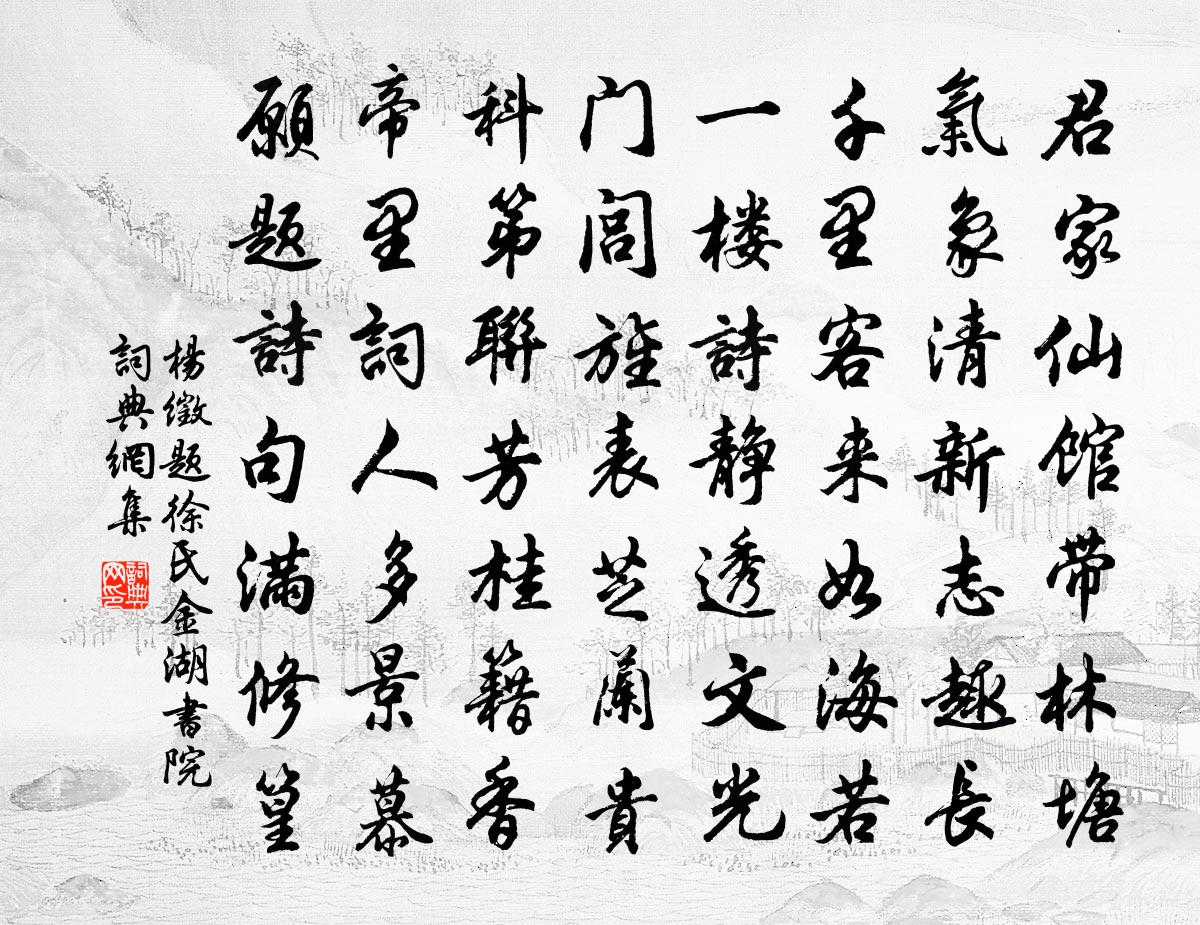 君家仙馆带林塘
氣象清新志趣長
千里客来如海若
一楼詩静透文光
门闾旌表芝蘭貴
科第聯芳桂籍香
帝里詞人多景慕
願题詩句满修篁
楊徽题徐氏金湖書院
詞典網集
詞典
网印